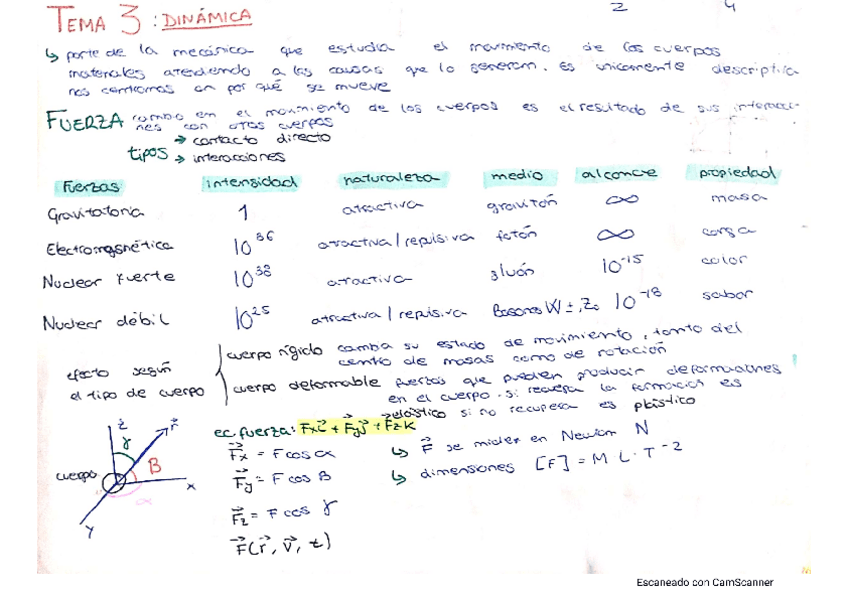 2 4
TEMA 3: DINÁMICA
↳ parte de la mecánica que estudia el movimiento de los cuerpos
materiales atendiendo a las causas que lo generan. es unicamente descriptiva
nos centramos en por qué se mueve
FUERZA cambio en el movimiento de los cuerpos es el resultado de sus interacci-
nes con otros cuerpos
tipos → contacto directo
→ interacciones
Fuerzas intensidad naturaleza medio alcance propiedad
Gravitatoria 1 atractiva gravitón ∞ masa
Electromagnética 10^36 atractiva / repulsiva fotón ∞ carga
Nuclear fuerte 10^38 atractiva gluón 10^-15 color
Nuclear débil 10^25 atractiva / repulsiva Bosones W±, Z0 10^-18 sabor
efecto según el tipo de cuerpo
cuerpo rígido camba su estado de movimiento, tanto del
centro de masas como de rotación
cuerpo deformable fuerzas que pueden producir deformaciones
en el cuerpo. si recupera la formación es
elástico si no recupera es plástico
z F⃗ γ cuerpo B x α y
ec. fuerza: Fx i⃗ + Fy j⃗ + Fz K
F⃗x = F cos α
F⃗y = F cos B
F⃗z = F cos γ
F⃗(r⃗, v⃗, t)
↳ F⃗ se mide en Newton N
↳ dimensiones [F] = M L · T^-2
Escaneado con CamScanner